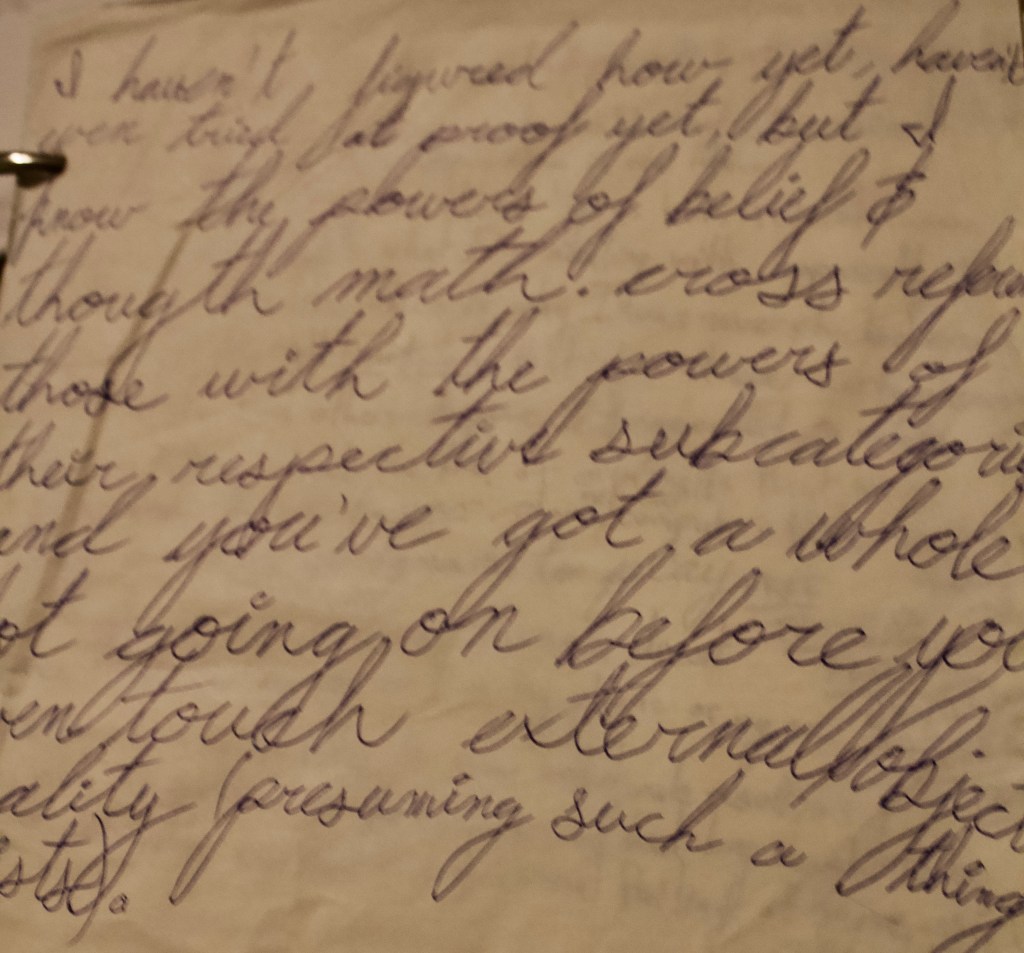 I haven't figured how yet, haven't
even tried at proof yet, but I
know the powers of belief &
thougth math. cross refer
those with the powers of
their respective subcategori
and you've got a whole
lot going on before you
ven touch external object
ality (presuming such a thing
sts).